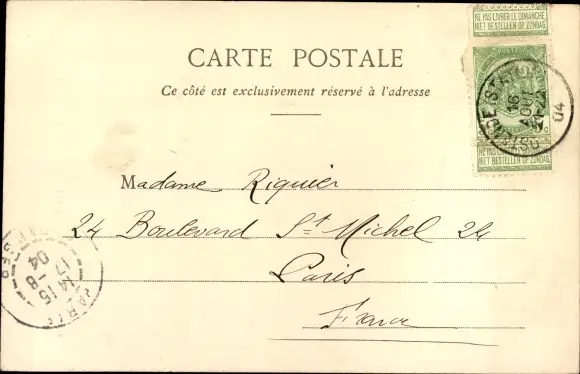 NE PAS LIVRER LE DIMANCHE
NIET BESTELLEN OP ZONDAG
CARTE POSTALE
Ce côté est exclusivement réservé à l'adresse
16
AOUT
21-22
04
NE PAS LIVRER LE DIMANCHE
NIET BESTELLEN OP ZONDAG
Madame Riquier
24 Boulevard St Michel 24
Paris
France
PARIS
14 15
17 -8
04